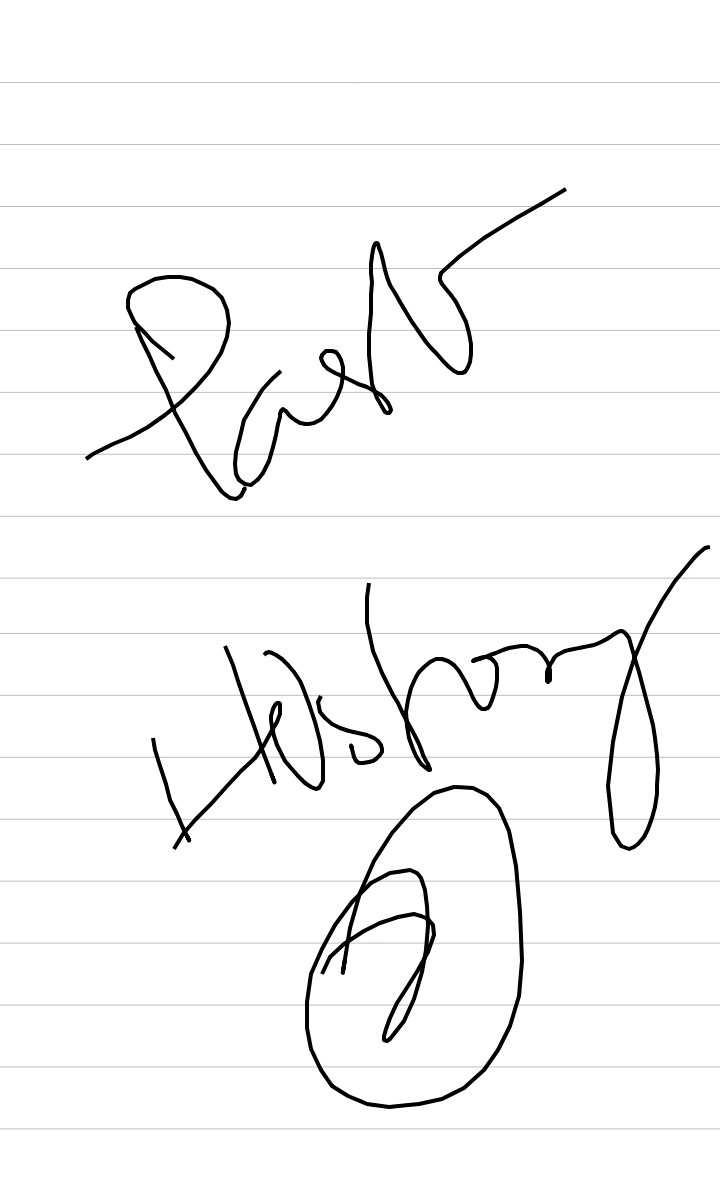 Past
History